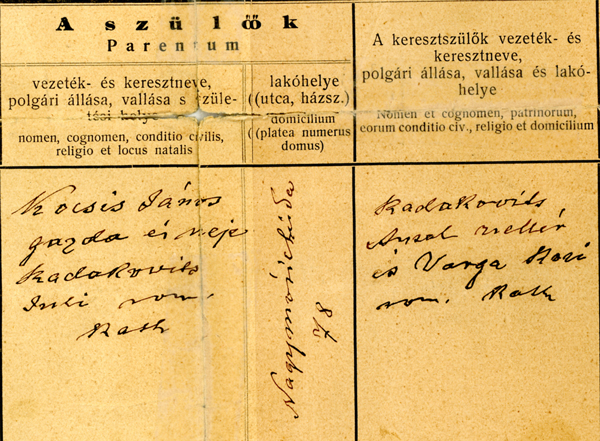 A szülők
Parentum
vezeték- és keresztneve,
polgári állása, vallása s szüle-
tési helye
nomen, cognomen, conditio civilis,
religio et locus natalis
lakóhelye
((utca, házsz.)
domicilium
((platea numerus
domus)
A keresztszülők vezeték- és
keresztneve,
polgári állása, vallása és lakó-
helye
Nomen et cognomen, patrinorum,
eorum conditio civ., religio et domicilium
Kocsis János
gazda és neje
Radakovits
Juli rom.
Kath
Nagymórichida
87
Radakovits
Antal
és Varga Rozi
rom. Kath